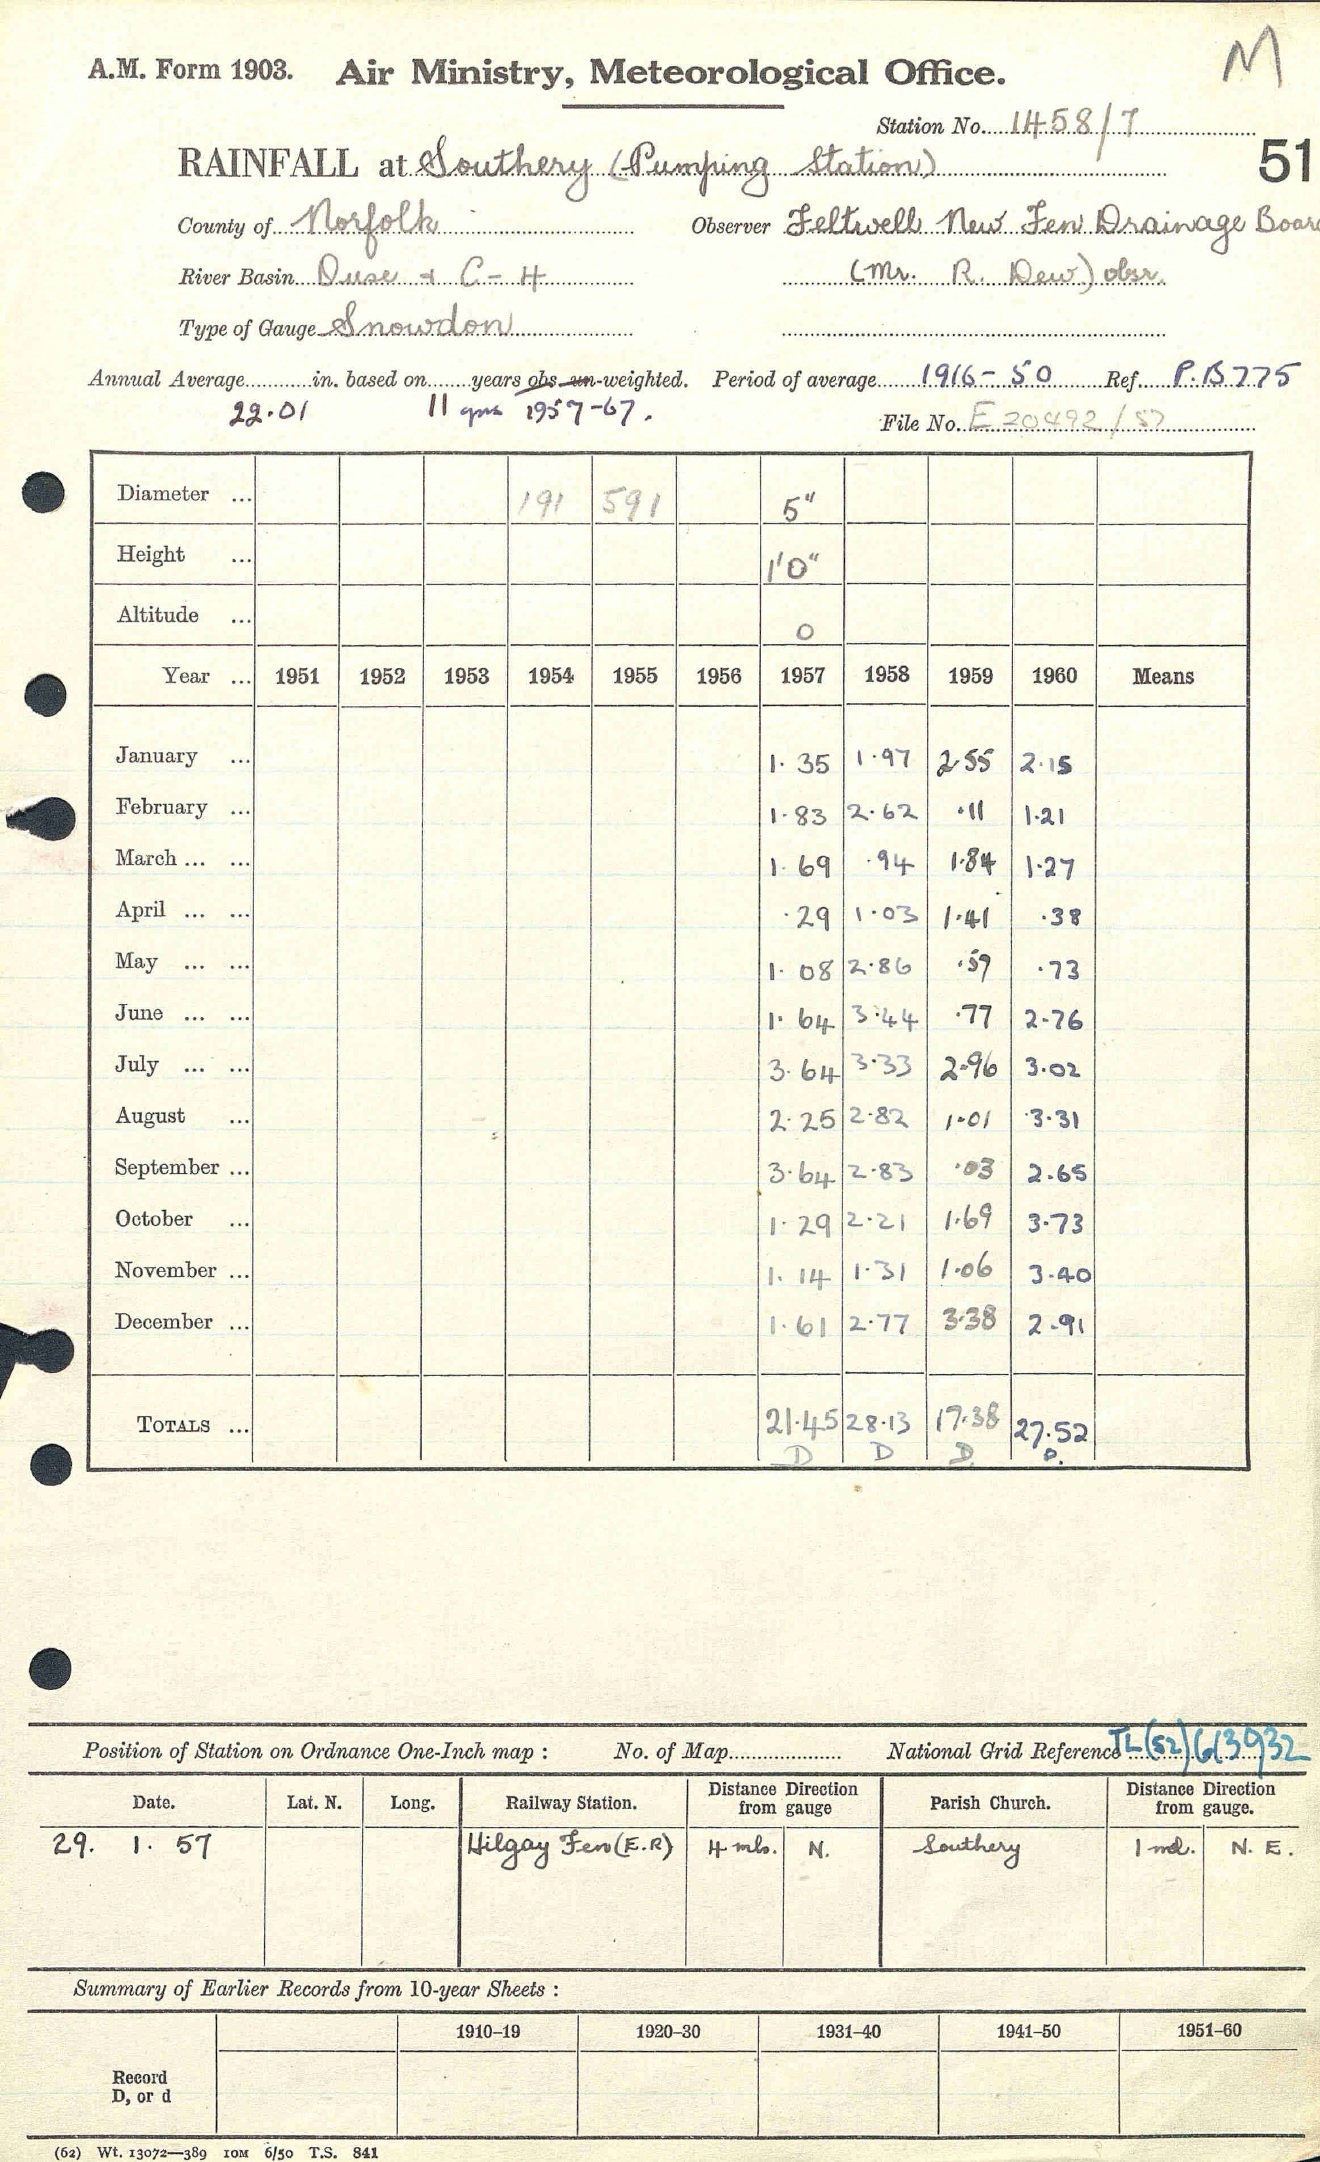 M
A.M. Form 1903. Air Ministry, Meteorological Office.
Station No. 1458/7
RAINFALL at Southery (Pumping Station) 51
County of Norfolk Observer Feltwell New Fen Drainage Board
River Basin Ouse + C-4 (Mr. R. Dew) obsr.
Type of Gauge Snowdon
Annual Average in. based on years obs un-weighted. Period of average 1916-50 Ref. P.B775
22.01 11 yrs 1957-67.
File No. E 20492/57
Diameter ... 191 591 5"
Height ... 1'0"
Altitude ... 0
Year ... 1951 1952 1953 1954 1955 1956 1957 1958 1959 1960 Means
January ... 1.35 1.97 2.55 2.15
February ... 1.83 2.62 .11 1.21
March ... ... 1.69 .94 1.84 1.27
April ... ... .29 1.03 1.41 .38
May ... ... 1.08 2.86 .57 .73
June ... ... 1.64 3.44 .77 2.76
July ... ... 3.64 3.33 2.96 3.02
August ... 2.25 2.82 1.01 3.31
September ... 3.64 2.83 .03 2.65
October ... 1.29 2.21 1.69 3.73
November ... 1.14 1.31 1.06 3.40
December ... 1.61 2.77 3.38 2.91
TOTALS ... 21.45 28.13 17.38 27.52
D D D D.
Position of Station on Ordnance One-Inch map : No. of Map National Grid Reference TL(52)613932
Date. Lat. N. Long. Railway Station. Distance Direction from gauge Parish Church. Distance Direction from gauge.
29. 1. 57 Hilgay Fen (E.R) 4 mls. N. Southery 1 ml. N. E.
Summary of Earlier Records from 10-year Sheets :
1910–19 1920–30 1931–40 1941–50 1951–60
Record
D, or d
(62) Wt. 13072—389 10M 6/50 T.S. 841